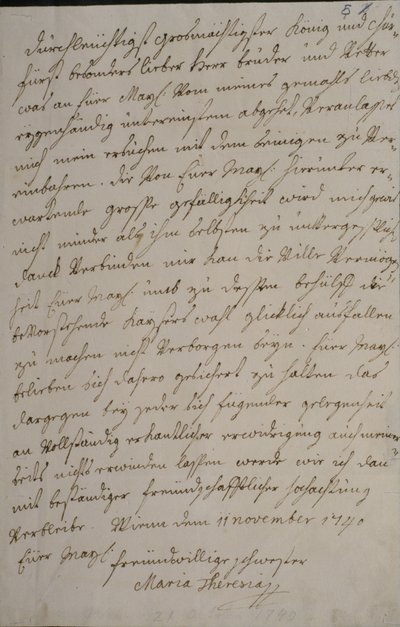 5
Durchleüchtigst Grosmächtigster König und Chur-
fürst besonders lieber Herr bruder und Vetter
was an Eüer May: Vom meines gemahls liebd:
eygenhändig unter einstem abgehet, Veranlasset
mich mein ersuchen mit dem seinigen zu Ver-
einbahren. die Von Eüer May: hierunter er-
wartende grosse gefälligkheit wird mich gewis
nicht minder als ihm selbsten zu
danck Verbinden mir kan die Ville Vermögen-
heit Eüer May: umb zu dessen behülff die
beVorstehende Kaysers wahl glicklich ausfallen
zu machen nicht Verborgen seyn. Eüer May:
belieben sich dahero gesichert zu halten das
dargegen bey jeder sich fügender gelegenheit
an Vollständig erkantlicher erwidrigung auch meiner
seits nichts erwinden lassen werde wie ich dan
mit beständiger freundschafftlicher hochachtung
Verbleibe. Wienn dem 11 november 1740
Eüer May:
freündwillige schwester
Maria Theresia